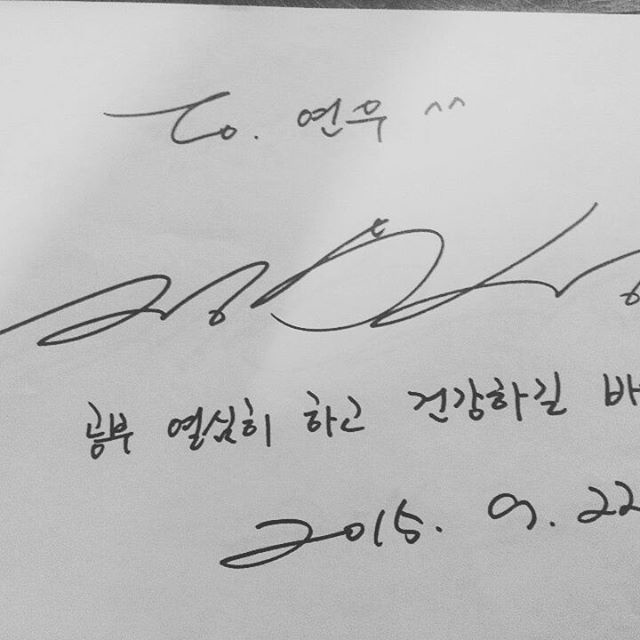 To. 연우 ^^
공부 열심히 하고 건강하길 바
2015. 9. 22